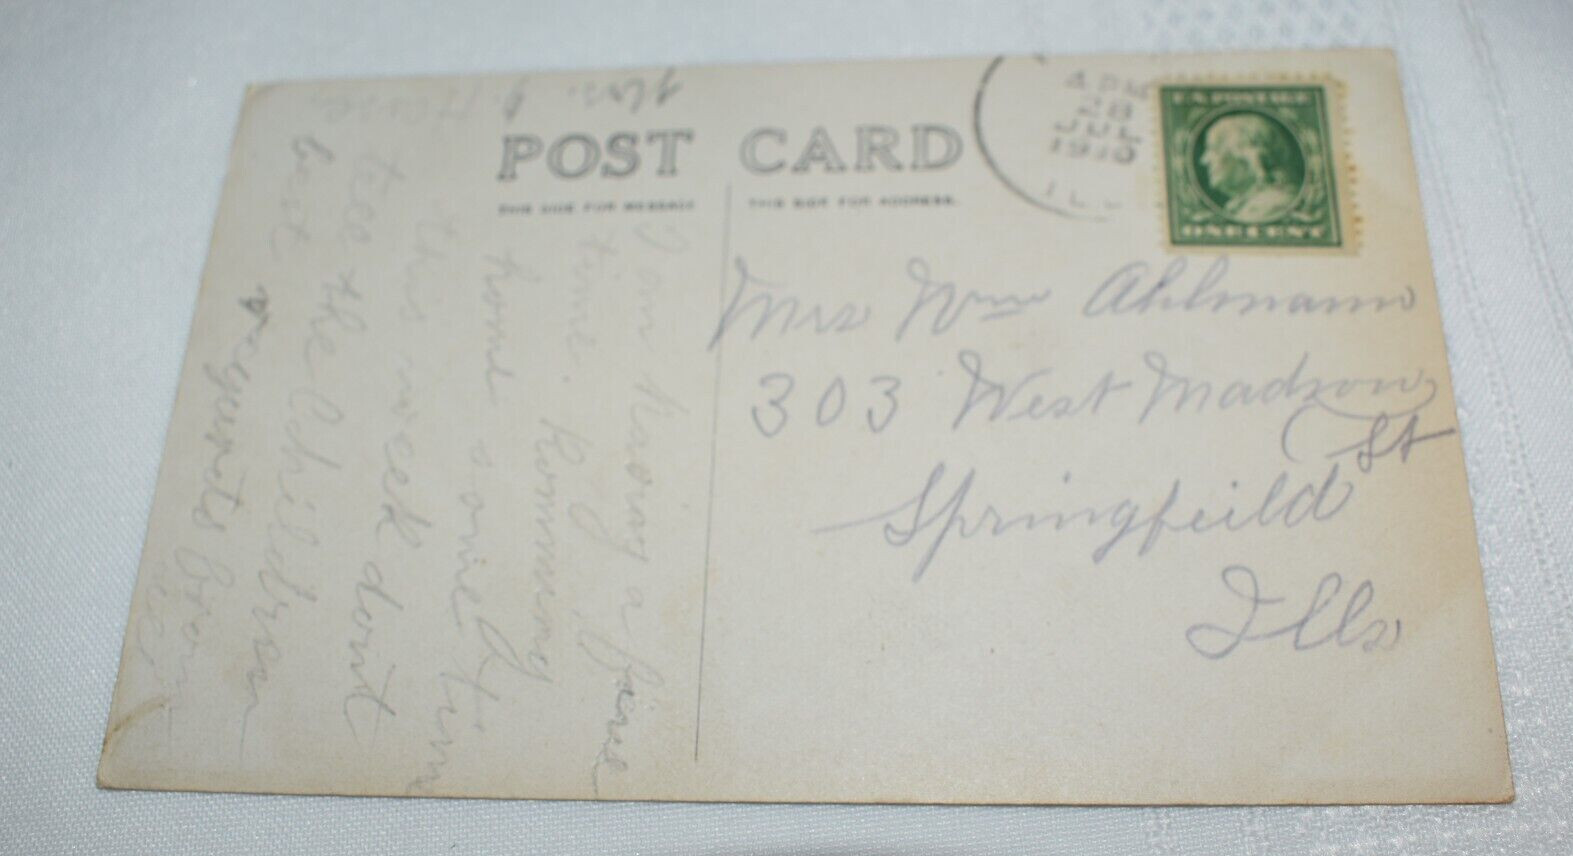 POST CARD
THIS SIDE FOR MESSAGE
THIS SIDE FOR ADDRESS.
4 PM
28
JUL
1910
ILL
U.S. POSTAGE
ONE CENT
Mrs Wm Ahlmann
303 West Madison
St
Springfeild
Ills
I am having a fine
time. Comming
home some time
this week dont
tell the Children
best regards from
all